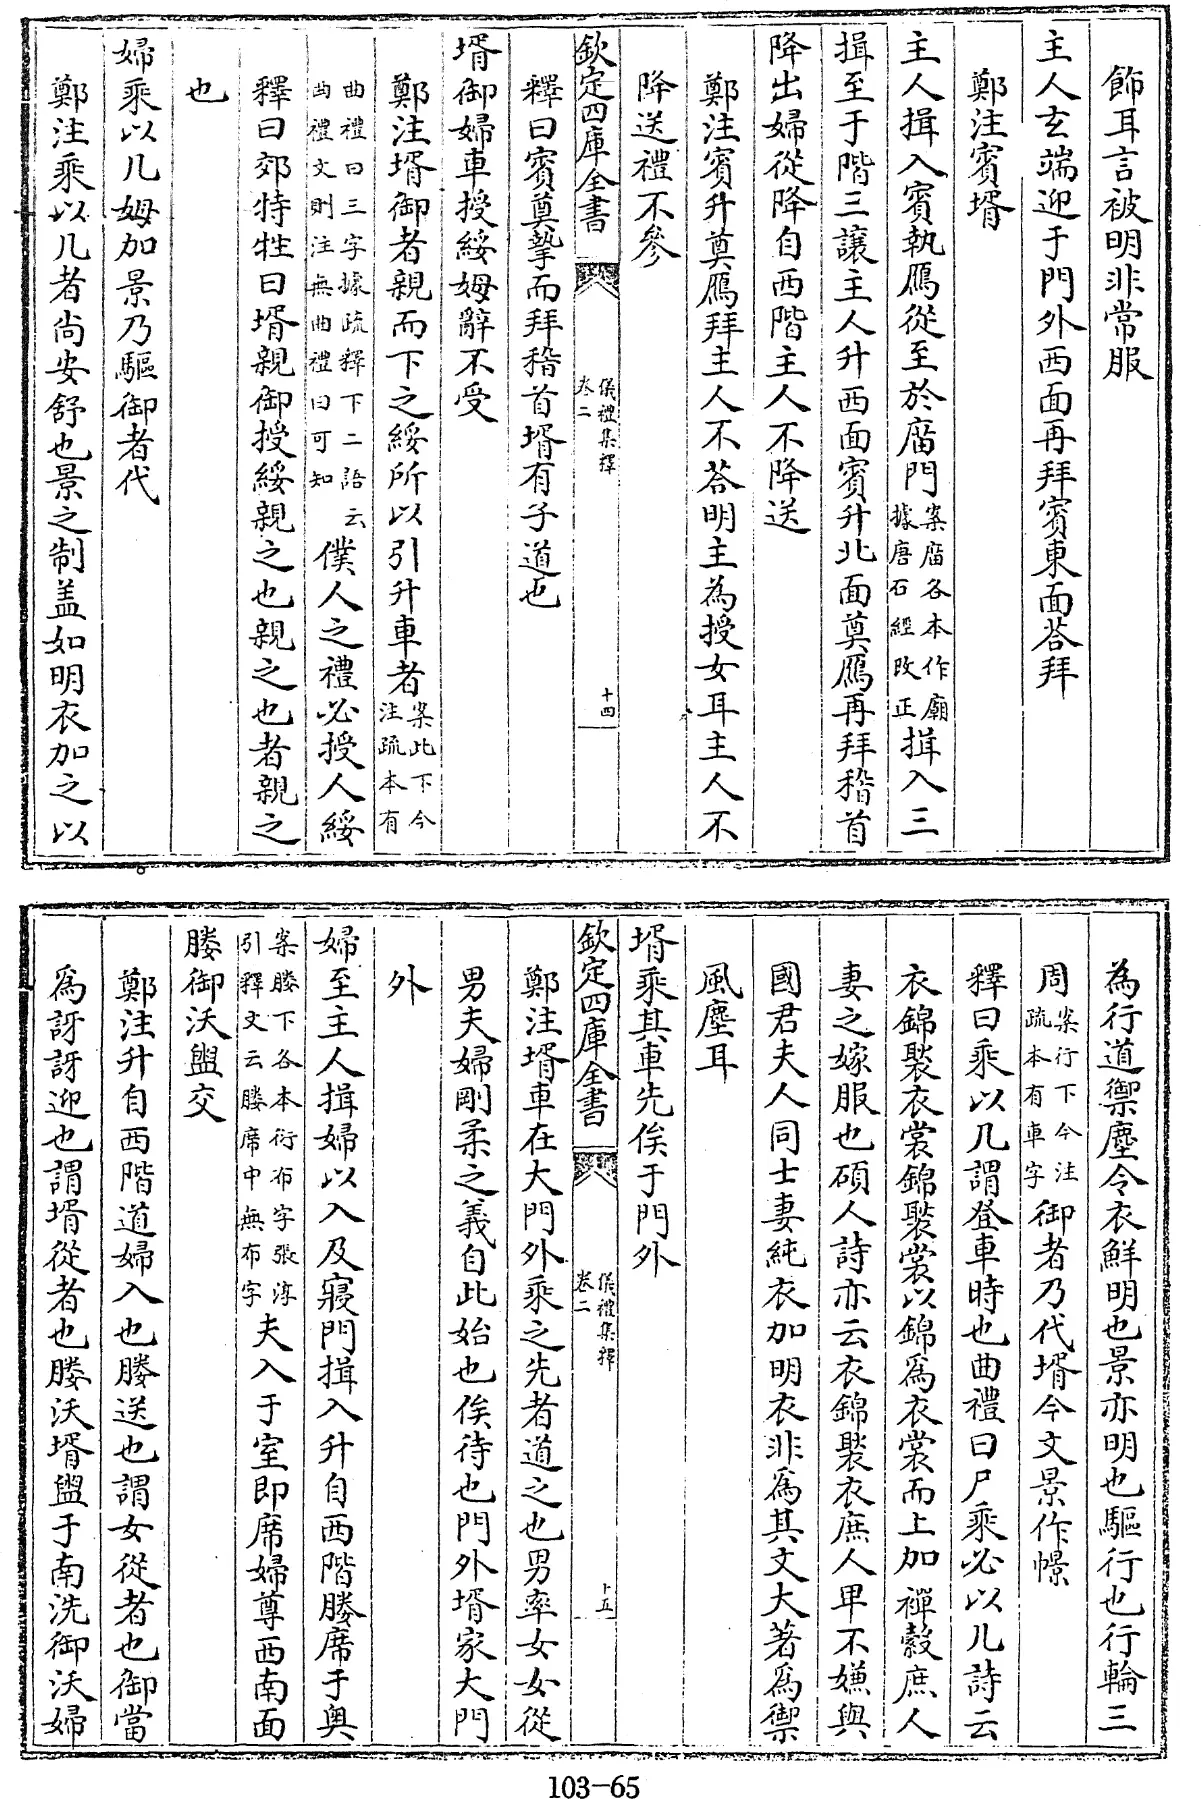 飾耳言被明非常服
主人玄端迎于門外西面再拜賓東面荅拜
鄭注賓壻
主人揖入賓執鴈從至於庿門案庿各本作廟據唐石經改正揖入三
揖至于階三讓主人升西面賓升北面奠鴈再拜稽首
降出婦從降自西階主人不降送
鄭注賓升奠鴈拜主人不荅明主為授女耳主人不
降送禮不參
欽定四庫全書
儀禮集釋
卷二
十四
釋曰賓奠摯而拜稽首壻有子道也
壻御婦車授綏姆辭不受
鄭注壻御者親而下之綏所以引升車者案此下今注疏本有
曲禮曰三字據疏釋下二語云曲禮文則注無曲禮曰可知僕人之禮必授人綏
釋曰郊特牲曰壻親御授綏親之也親之也者親之
也
婦乘以几姆加景乃驅御者代
鄭注乘以几者尚安舒也景之制盖如明衣加之以
為行道禦塵令衣鮮明也景亦明也驅行也行輪三
周案行下今注疏本有車字御者乃代壻今文景作憬
釋曰乘以几謂登車時也曲禮曰尸乘必以几詩云
衣錦褧衣裳錦褧裳以錦爲衣裳而上加襌縠庶人
妻之嫁服也碩人詩亦云衣錦褧衣庶人卑不嫌與
國君夫人同士妻純衣加明衣非爲其文大著爲禦
風塵耳
壻乘其車先俟于門外
欽定四庫全書
儀禮集釋
卷二
十五
鄭注壻車在大門外乘之先者道之也男率女女從
男夫婦剛柔之義自此始也俟待也門外壻家大門
外
婦至主人揖婦以入及寢門揖入升自西階媵席于奥
案媵下各本衍布字張淳引釋文云媵席中無布字夫入于室即席婦尊西南面
媵御沃盥交
鄭注升自西階道婦入也媵送也謂女從者也御當
爲訝訝迎也謂壻從者也媵沃壻盥于南洗御沃婦
103-65